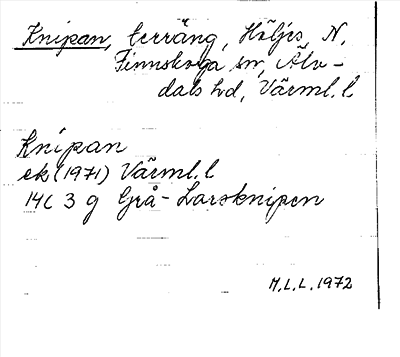 Knipan, terräng, Höljes, N.
Finnskoga sn, Älv-
dals hd, Värml. l.
Knipan
ek (1971) Värml. l
14C 3 g Grå-Larsknipen
M.L.L. 1972